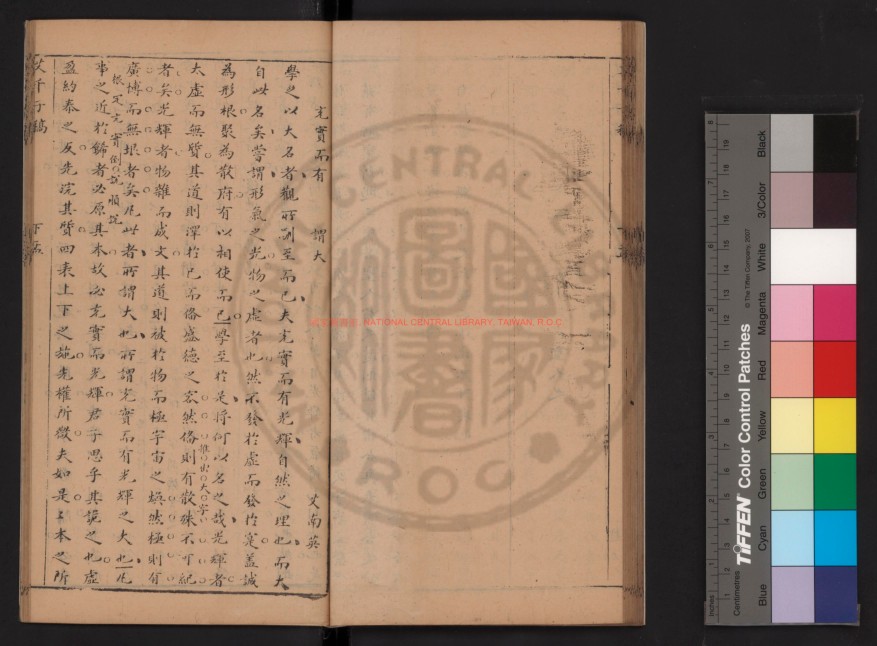 充實而有　謂大
艾南英
學之以大名者觀所副至而已夫充實而有光輝自然之理也而大
自此名矣嘗謂形氣之光物之虛者也然不發於虛而發於寔蓋誠
為形根聚為散府有以相使而已學至於是將何以名之哉光輝者
大虛而無質其道則渾於已而俻盛德之容然俻則有散殊不可紀
推出大字
者矣光輝者物雜而成文其道則被於物而極宇宙之煥然極則有
廣博而無垠者矣凡此者所謂大也所謂充實而有光輝之大也凡
根定充實倒說順說
事之近於餙者必原其本故必充實而光輝君子思乎其詭之也虛
盈約泰之反先完其質四表上下之施先權所發夫如是之本之所
艾千子稿
下孟
NATIONAL CENTRAL LIBRARY, TAIWAN, R.O.C.
NATIONAL CENTRAL LIBRARY
ROC
國家圖書
TIFFEN Color Control Patches
© The Tiffen Company, 2007
Centimetres
Inches
Blue
Cyan
Green
Yellow
Red
Magenta
White
3/Color
Black